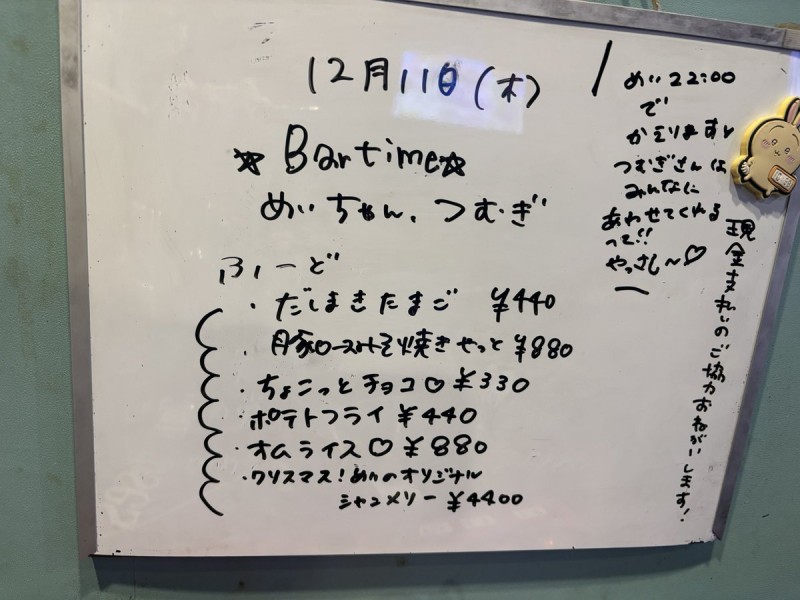 12月11日(木)
☆Bartime☆
めいちゃん、つむぎ
ふーど
・だしまきたまご ¥440
・豚ロースみそ焼きせっと ¥880
・ちょこっとチョコ♡ ¥330
・ポテトフライ ¥440
・オムライス♡ ¥880
・クリスマス!めいのオリジナル
シャンメリー ¥4400
めい22:00
で
かえります
つむぎさんは
みんなに
あわせてくれる
って!!
やっさし~♡
現金支払いのご協力おねがいします!